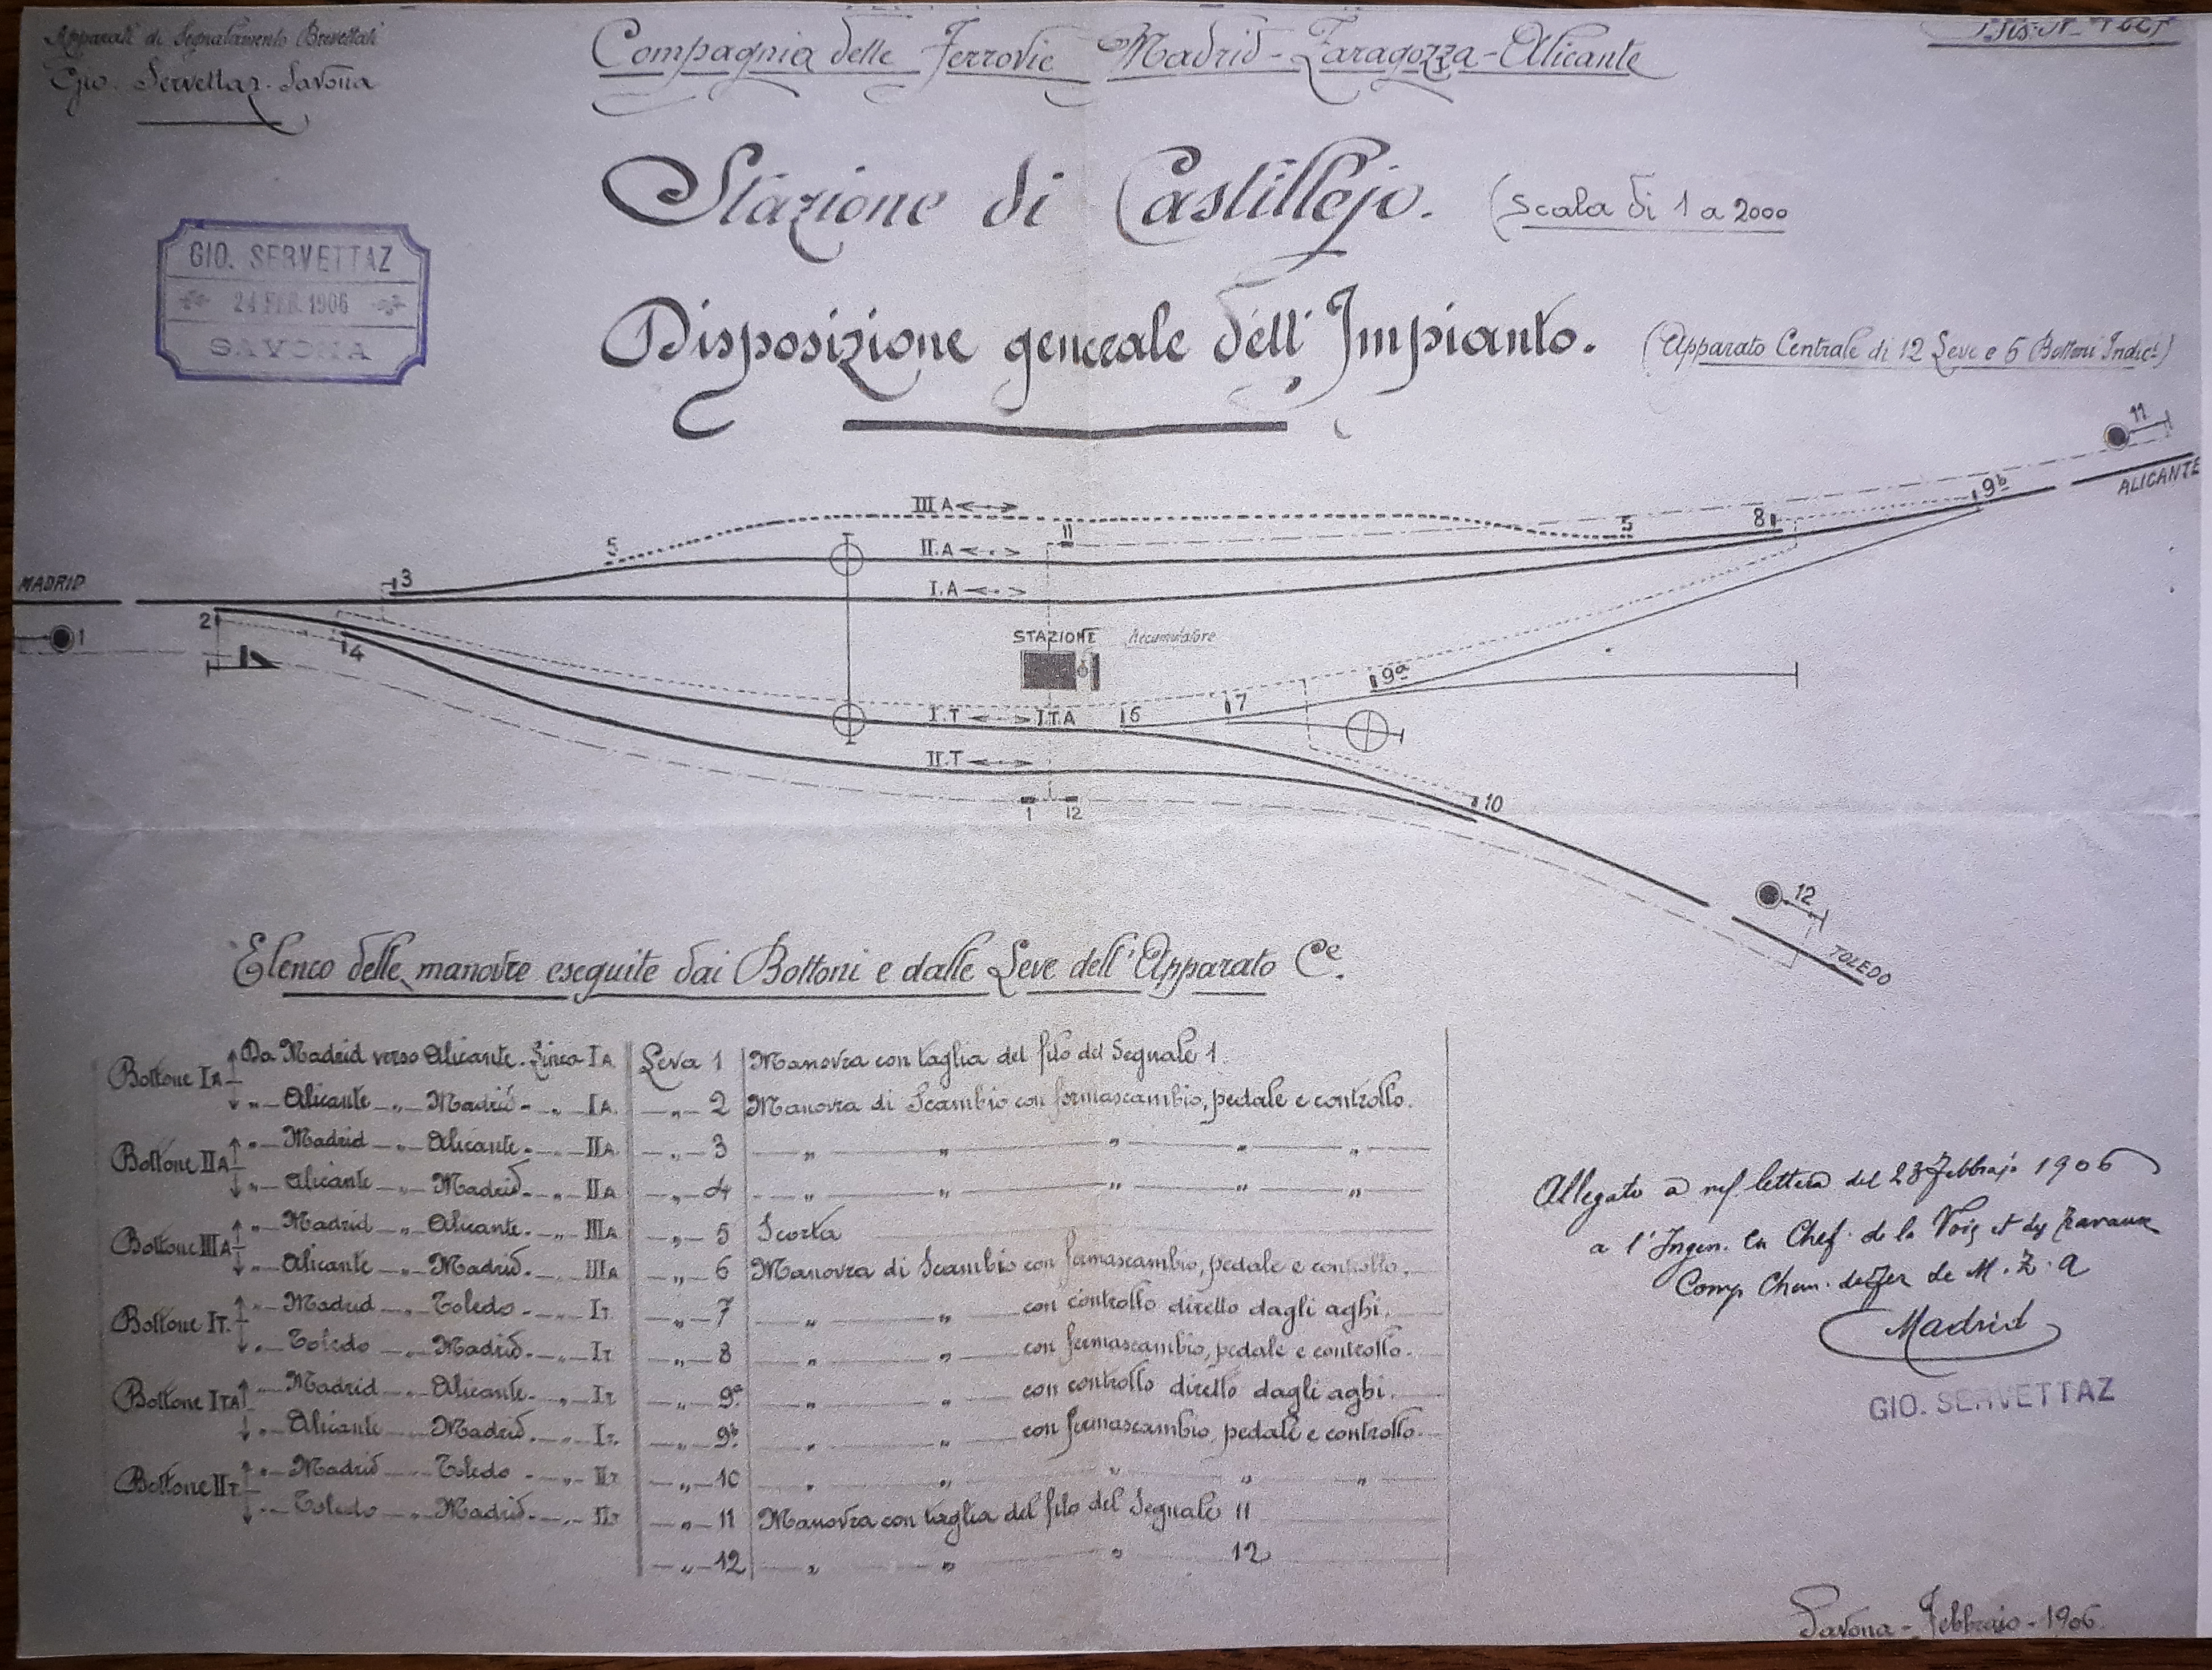 Apparati di Segnalamento Brevettati
Gio. Servettaz. Savona
Compagnia delle Ferrovie Madrid-Zaragozza-Alicante
Stazione di Castillejo. (Scala di 1 a 2000
GIO. SERVETTAZ
24 FEB. 1906
SAVONA
Disposizione generale dell'Impianto. (Apparato Centrale di 12 Leve e 6 Bottoni Indici)
11
ALICANTE
9b
III A
5
5
8
II
II.A
MADRID
3
I.A
1
2
4
STAZIONE Accumulatore
9a
7
I.T I.T.A 6
II.T
10
1 12
12
TOLEDO
Elenco delle manovre eseguite dai Bottoni e dalle Leve dell'Apparato Ce.
Bottone IA Da Madrid verso Alicante. Linea IA Leva 1 Manovra con taglia del filo del Segnale 1.
" Alicante " Madrid " IA. " 2 Manovra di Scambio con fermascambio, pedale e controllo.
Bottone IIA " Madrid " Alicante. " IIA " 3 " " " " "
" Alicante " Madrid " IIA " 4 " " " " "
Bottone IIIA " Madrid " Alicante. " IIIA " 5 Scorta
" Alicante " Madrid. " IIIA " 6 Manovra di Scambio con fermascambio, pedale e controllo.
Bottone IT. " Madrid " Toledo " IT. " 7 " " con controllo diretto dagli aghi.
" Toledo " Madrid. " IT " 8 " " con fermascambio, pedale e controllo.
Bottone ITA " Madrid " Alicante. " IT " 9a " " con controllo diretto dagli aghi.
" Alicante " Madrid. " IT. " 9b. " " con fermascambio, pedale e controllo.
Bottone IIT. " Madrid " Toledo " IIT " 10 " " " " "
" Toledo " Madrid. " IIT " 11 Manovra con taglia del filo del Segnale 11
" 12 " " " 12
Allegato a lettera del 23 Febbrajo 1906
a l'Ingen. en Chef. de la Voie et des Travaux
Comp Chem. de Fer de M. Z. A
Madrid
GIO. SERVETTAZ
Savona - Febbraio - 1906.